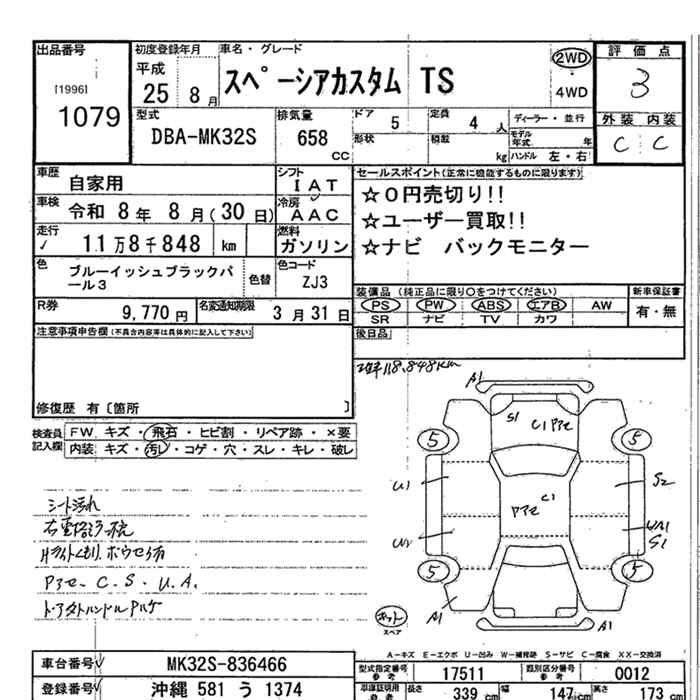 出品番号
[1996]
1079
初度登録年月
平成
25 8月
車名・グレード
スペーシアカスタム TS
2WD
・
4WD
評価点
3
外装 内装
C C
型式
DBA-MK32S
排気量
658
CC
ドア 5
定員 4 人
ディーラー・並行
形状
積載
kg
モデル年式 年
ハンドル 左・右
車歴
自家用
シフト
IAT
セールスポイント(正常に機能するものに限ります)
☆0円売切り!!
☆ユーザー買取!!
☆ナビ バックモニター
車検
令和 8年 8月(30日)
冷房
AAC
走行
✓ 11万8千848 km
燃料
ガソリン
色
ブルーイッシュブラックパール3
色替
色コード
ZJ3
装備品 (純正品に限り○をつけてください)
PS PW ABS エアB AW
SR ナビ TV カワ
新車保証書
有・無
R券
9,770円
名変通知期限
3月31日
後日品
注意事項申告欄(不具合内容等は具体的に記入して下さい)
修復歴 有〔箇所 〕
118,848km
検査員記入欄
FW キズ・飛石・ヒビ割・リペア跡・×要
内装 キズ・汚レ・コゲ・穴・スレ・キレ・破レ
シート汚れ
Pアセ. C. S. U. A.
A1
S1
C1 Pアセ
5
5
U1
S2
C1
Pアセ
S1
5
5
A1
A1
スペア
A－キズ E－エクボ U－凹み W－補修跡 S－サビ C－腐食 XX－交換済
車台番号✓
MK32S-836466
登録番号✓
沖縄 581 う 1374
型式指定番号
参考
17511
類別区分番号
参考
0012
車庫証明用
参考
長さ 339 cm
幅 147 cm
高さ 173 cm